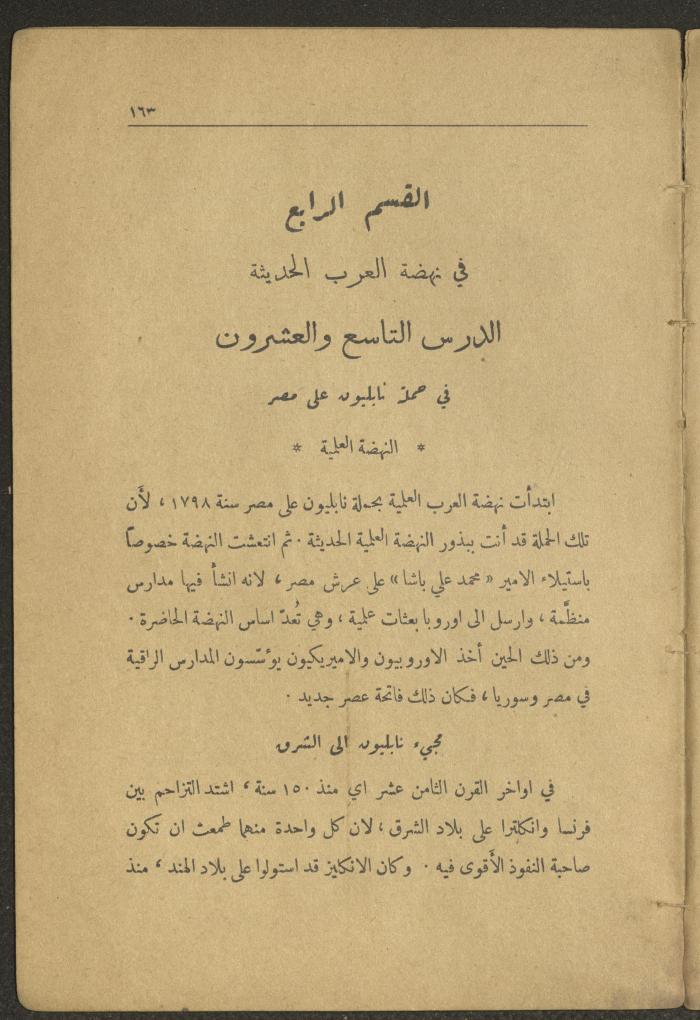 ١٦٣
القسم الرابع
في نهضة العرب الحديثة
الدرس التاسع والعشرون
في حملة نابليون على مصر
* النهضة العلمية *
ابتدأت نهضة العرب العلمية بحملة نابليون على مصر سنة ١٧٩٨ ، لأَن
تلك الحملة قد أتت ببذور النهضة العلمية الحديثة . ثم انتعشت النهضة خصوصاً
باستيلاء الامير « محمد علي باشا » على عرش مصر ، لانه انشأ فيها مدارس
منظَّمة ، وارسل الى اوروبا بعثات علمية ، وهي تُعدّ اساس النهضة الحاضرة .
ومن ذلك الحين أخذ الاوروبيون والاميريكيون يؤسّسون المدارس الراقية
في مصر وسوريا ، فكان ذلك فاتحة عصر جديد .
مجيء نابليون الى الشرق
في اواخر القرن الثامن عشر اي منذ ١٥٠ سنة ، اشتد التزاحم بين
فرنسا وانكلترا على بلاد الشرق ، لان كل واحدة منهما طمعت ان تكون
صاحبة النفوذ الأَقوى فيه . وكان الانكليز قد استولوا على بلاد الهند ، منذ